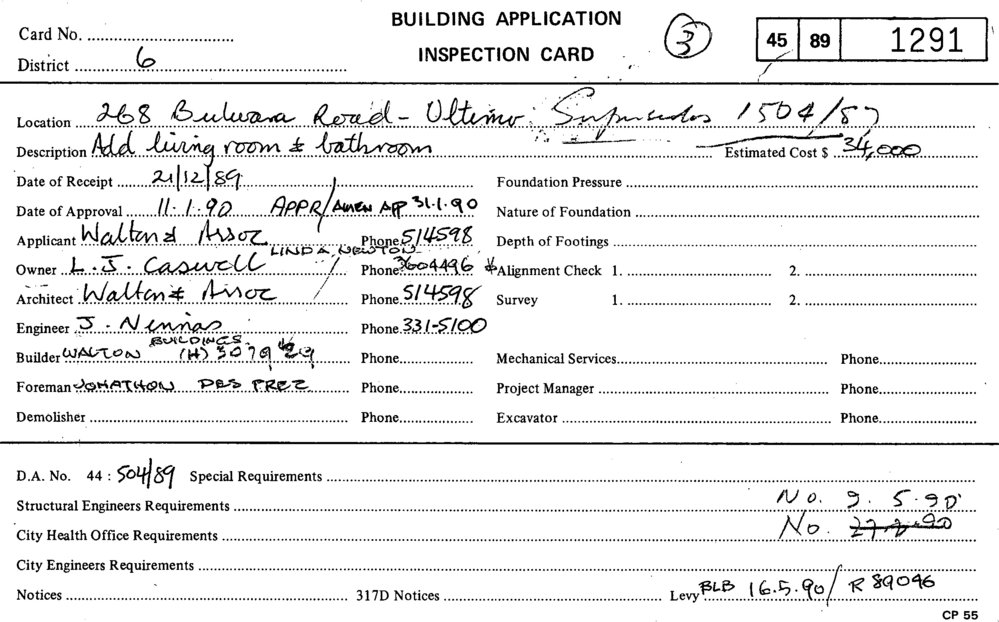 Card No. BUILDING APPLICATION 3 45 89 1291
District 6 INSPECTION CARD
Location 268 Bulwara Road - Ultimo Supersedes 1504/87
Description Add living room & bathroom Estimated Cost $ 34,000
Date of Receipt 21/12/89 Foundation Pressure
Date of Approval 11.1.90 APPR/AMEN APP 31.1.90 Nature of Foundation
Applicant Walton & Assoc Phone 514598 Depth of Footings
LINDA NEWTON
Owner L.J. Caswell Phone 3604496 Alignment Check 1. 2.
Architect Walton & Assoc Phone 514598 Survey 1. 2.
Engineer J. Phone 331-5100
BUILDINGS
Builder WALTON (H) Phone Mechanical Services Phone
Foreman JONATHON DES PREZ Phone Project Manager Phone
Demolisher Phone Excavator Phone
D.A. No. 44 : 504/89 Special Requirements
Structural Engineers Requirements No. 9.5.90
City Health Office Requirements No.
City Engineers Requirements
Notices 317D Notices Levy BLB 16.5.90/ R 89046
CP 55